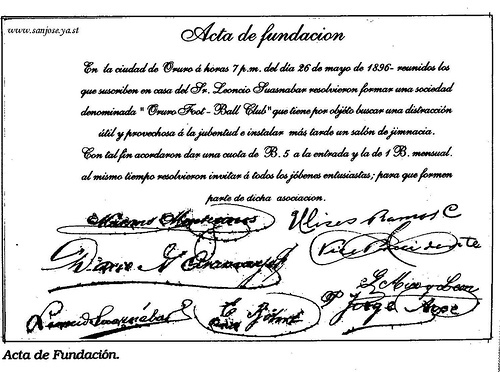 www.sanjose.ya.st
Acta de fundacion
En la ciudad de Oruro á horas 7 p.m. del día 26 de mayo de 1896- reunidos los
que suscriben en casa del Sr. Leoncio Suasnabar resolvieron formar una sociedad
denominada " Oruro Foot - Ball Club" que tiene por objéto buscar una distracción
útil y provechosa á la jubentud e instalar más tarde un salón de jimnacia.
Con tal fin acordaron dar una cuota de B. 5 a la entrada y la de 1 B. mensual.
al mismo tiempo resolvieron invitar á todos los jóbenes entusiastas; para que formen
parte de dicha asociacion.
Ulises Ramos C
Vice Presidente
Leoncio Suasnábar
Jorge
Acta de Fundación.